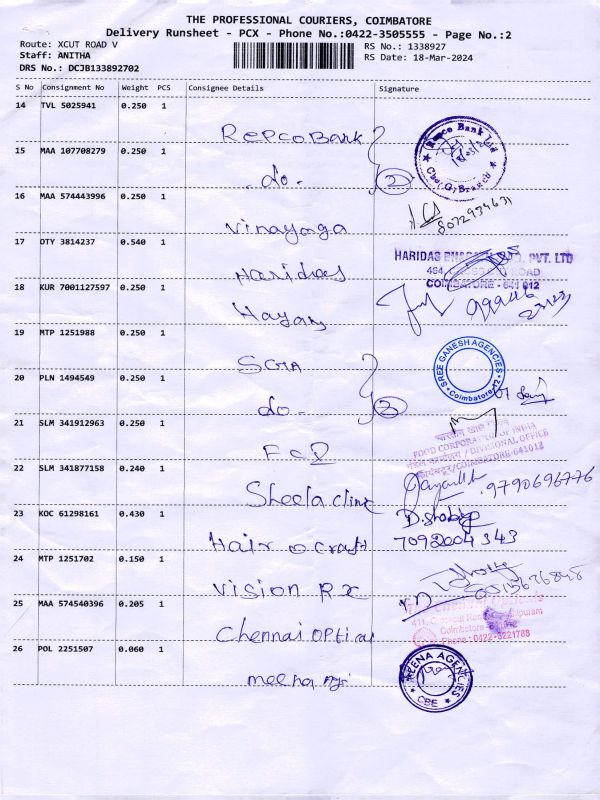 THE PROFESSIONAL COURIERS, COIMBATORE
Delivery Runsheet - PCX - Phone No.:0422-3505555 - Page No.:2
Route: XCUT ROAD V
RS No.: 1338927
Staff: ANITHA
RS Date: 18-Mar-2024
DRS No.: DCJB133892702
S No Consignment No Weight PCS Consignee Details Signature
14 TVL 5025941 0.250 1 Repco Bank
Repco Bank Ltd
15 MAA 107708279 0.250 1 do. 2
16 MAA 574443996 0.250 1 Vinayaga 8072934631
17 OTY 3814237 0.540 1 Haridas
HARIDAS PVT. LTD
ROAD
COIMBATORE - 641 012
18 KUR 7001127597 0.250 1 Hayam
19 MTP 1251988 0.250 1 SGA
SREE GANESH AGENCIES
Coimbatore-12
20 PLN 1494549 0.250 1 do. 2
21 SLM 341912963 0.250 1 FCI
FOOD CORPORATION OF INDIA
DIVISIONAL OFFICE
COIMBATORE-641012
22 SLM 341877158 0.240 1 Sheela clinic 9790696776
23 KOC 61298161 0.430 1 Hair o craft
7092004343
24 MTP 1251702 0.150 1 Vision RX
25 MAA 574540396 0.205 1 Chennai Optical
Coimbatore
Phone : 0422-
26 POL 2251507 0.060 1 meena Agi
MEENA AGENCIES
CBE